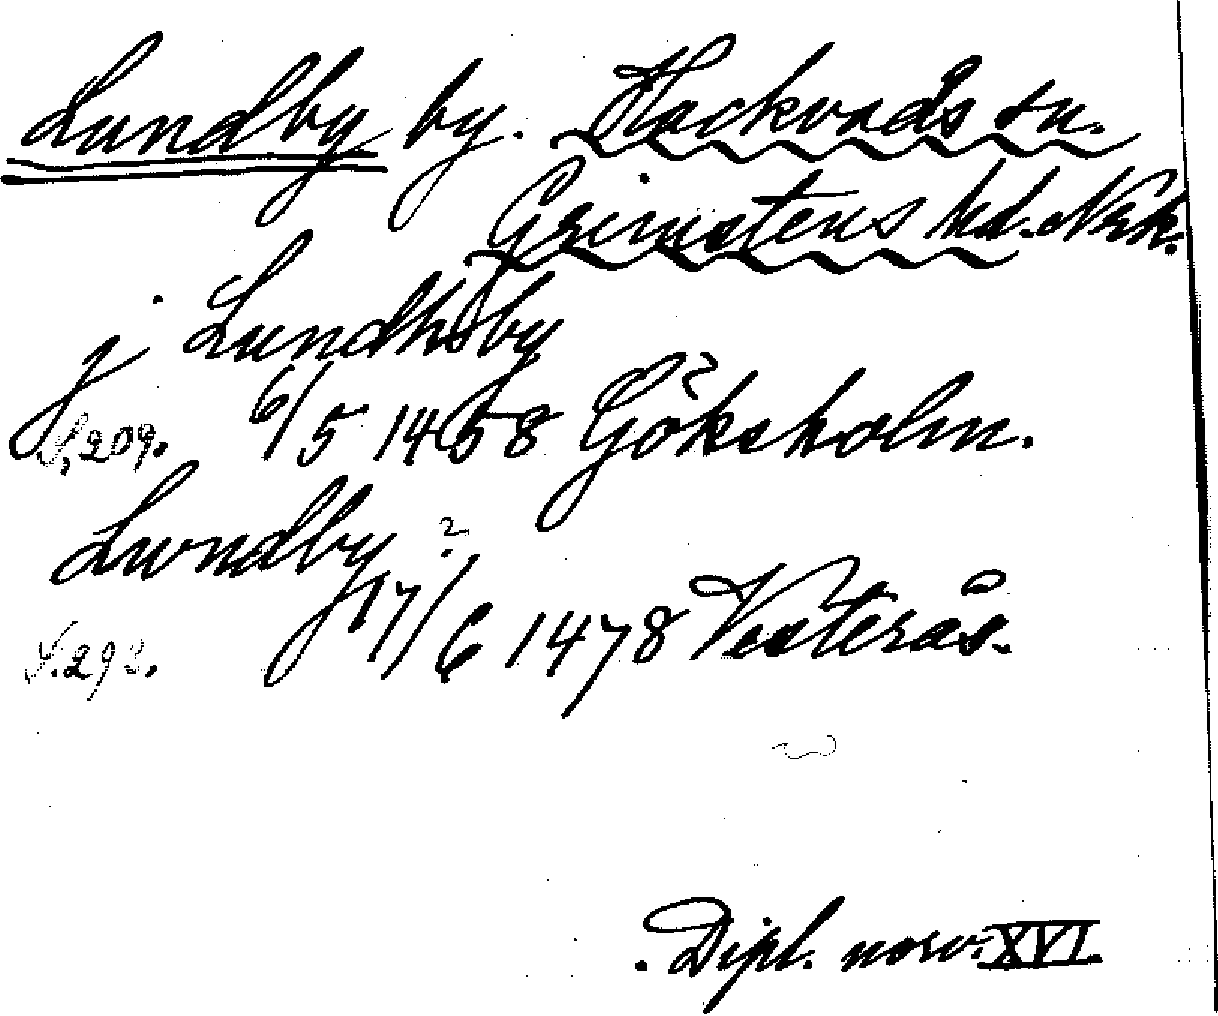 Lundby by. Hackvads sn.
Grimstens hd. Nrk.
j Lundhsby
s. 209. 6/5 1458 Göksholm.
Lundby ?
s. 293. 17/6 1478 Vesterås.
Dipl. norv. XVI.